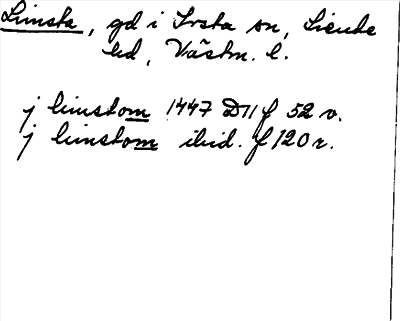 Limsta, gd i Irsta sn, Siende
hd, Västm. l.
j limstom 1447 D11 f 52 v.
j limstom ibid. f 120 r.